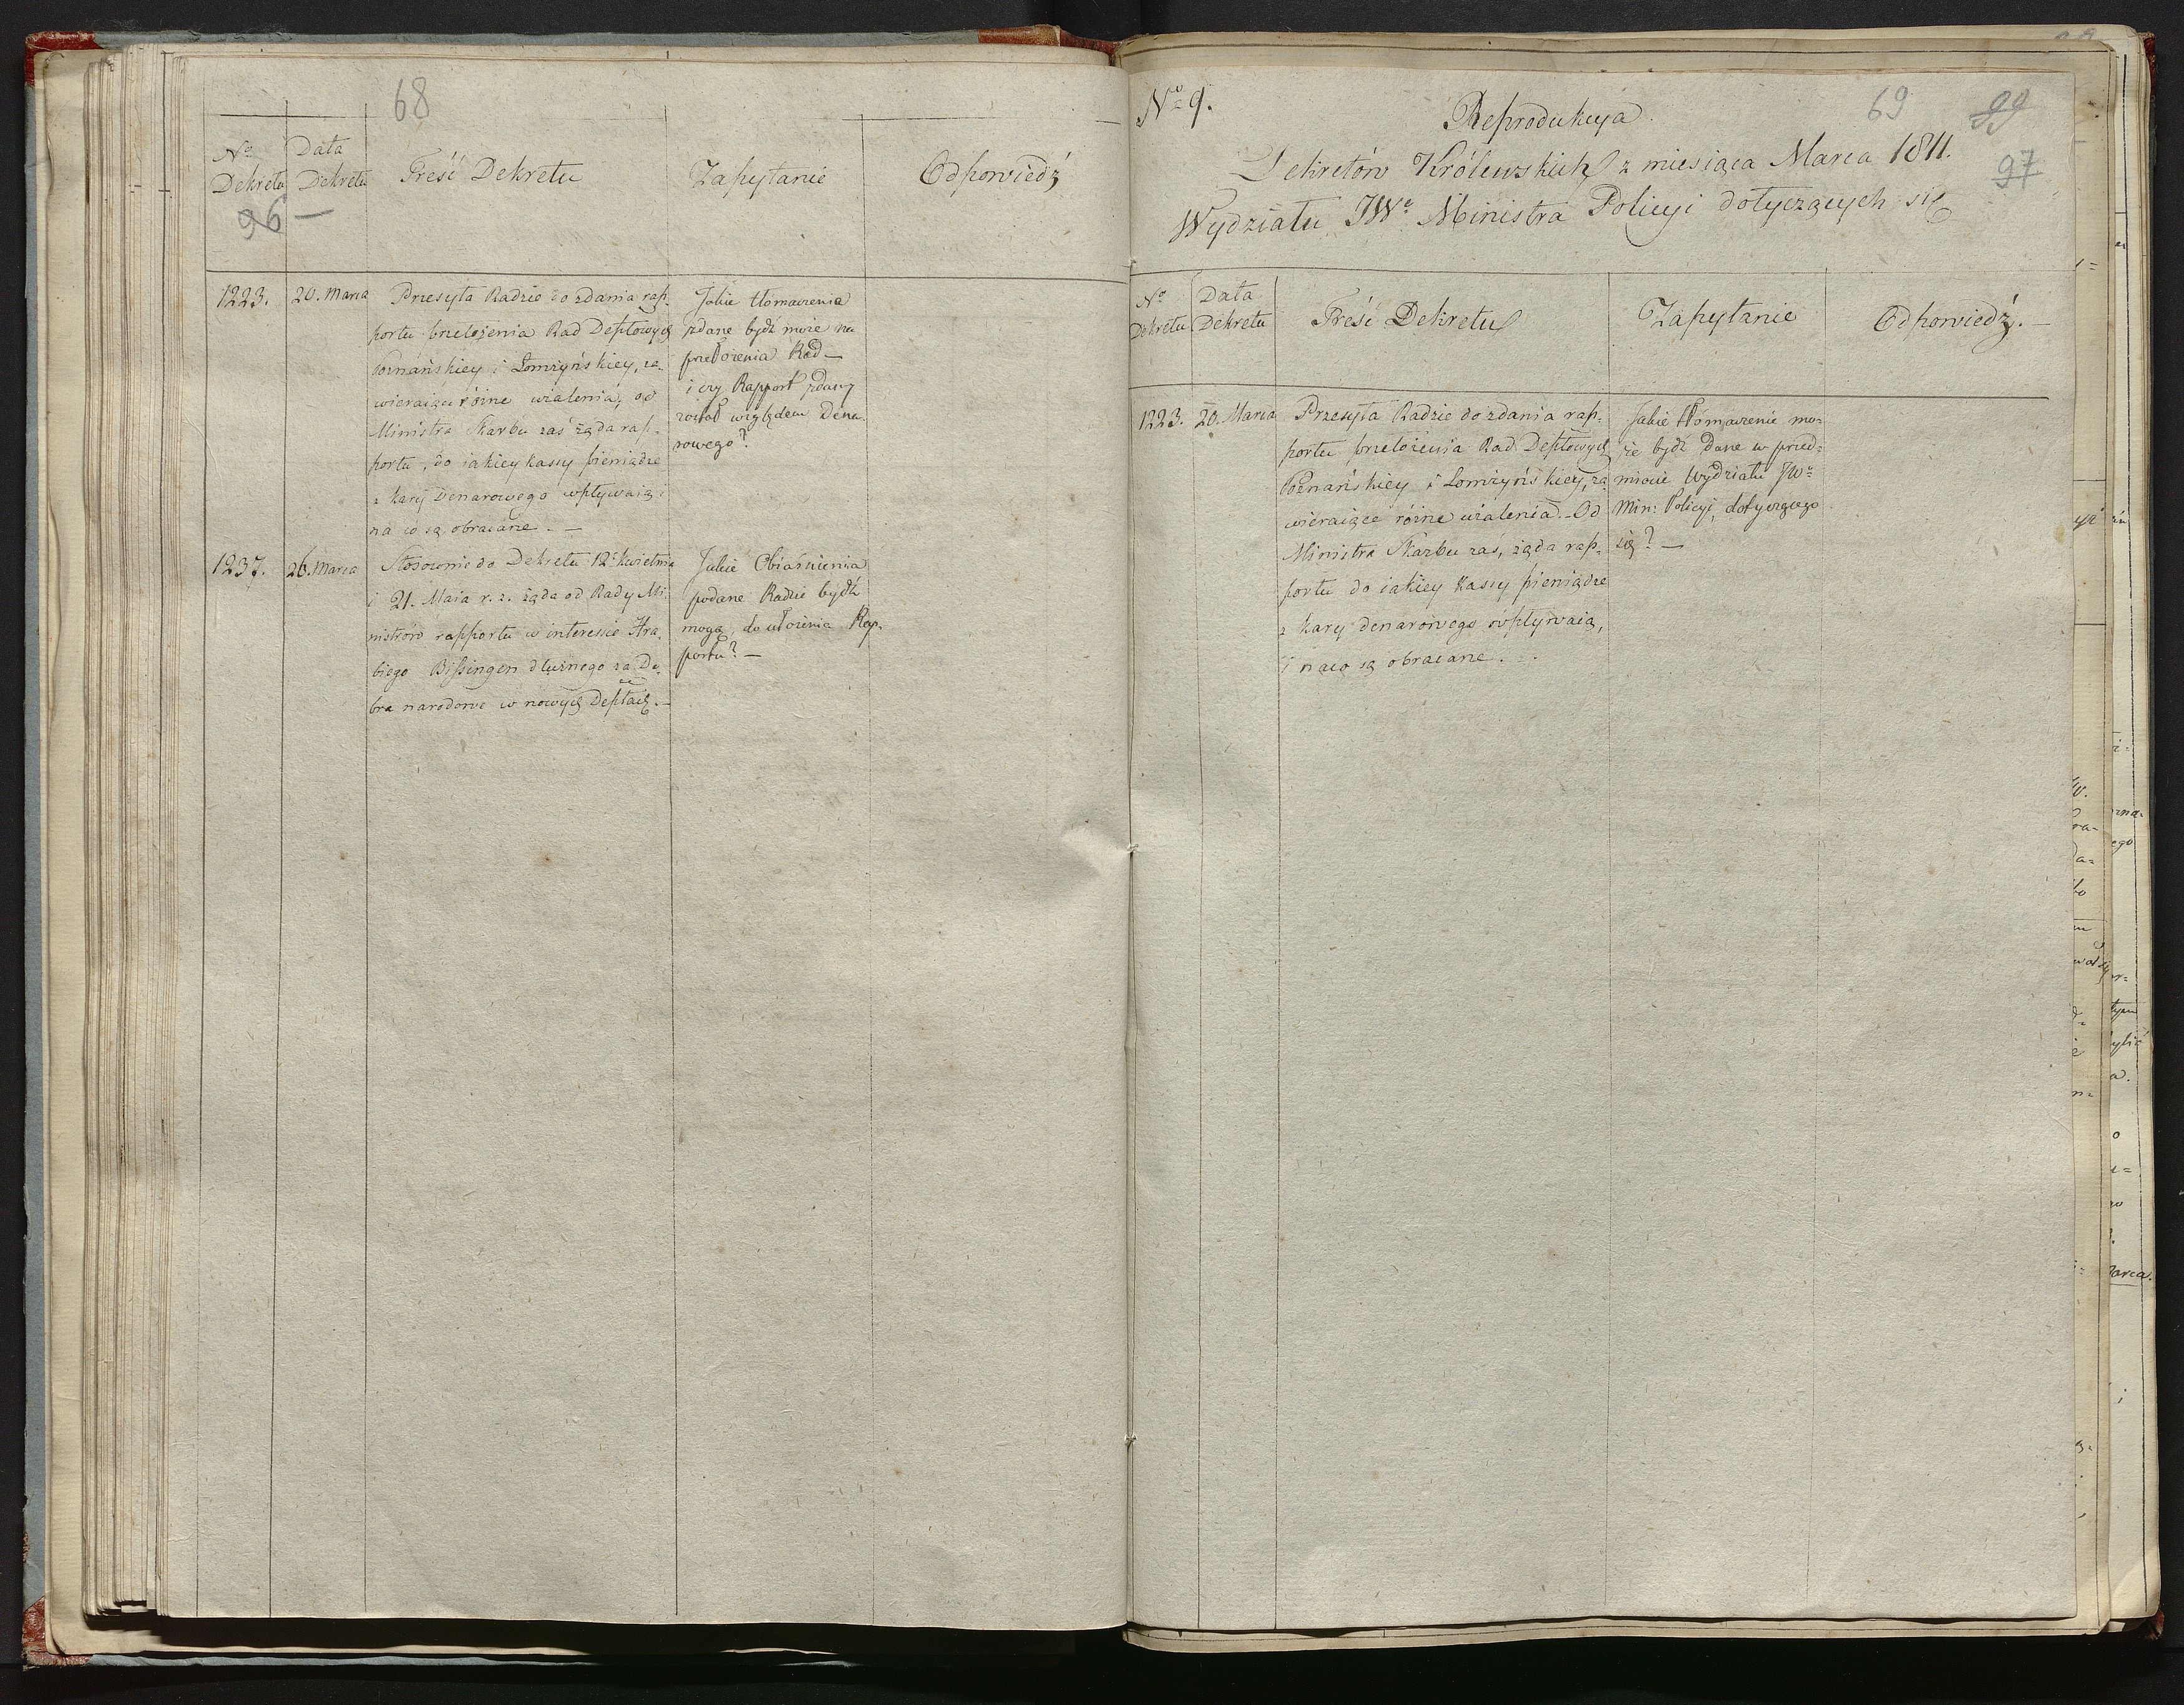 68
No Dekretu
Data Dekretu
Treść Dekretu
Zapytanie
Odpowiedź
96 —
1223.
20. Marca
Przesyła Radzie do zdania rap-
portu przełożenia Rad Depłowych
Poznańskiey i Łomżyńskiey, za-
wieraiące różne użalenia, od
Ministra Skarbu zaś żąda rap-
portu, do iakiey kassy pieniądze
z kary Denarowego wpływaią i
na co są obracane. —
Jakie tłomaczenia
zdane bydź może na
przełożenia Rad —
i czy Rapport zdany
został względem Dena-
rowego?
1237.
26. Marca
Stosownie do Dekretu 12. kwietnia
i 21. Maia r. z. żąda od Rady Mi-
nistrów rapportu w interessie Hra-
biego Bissingen dłużnego za Do-
bra narodowe w nowych Depłach. —
Jakie Obiaśnienia
podane Radzie bydź
mogą, do ułożenia Rap-
portu? —
No 9.
69
99
97
Reprodukcya
Dekretów Królewskich z miesiąca Marca 1811.
Wydziału JWo Ministra Policyi dotyczących się
No Dekretu
Data Dekretu
Treść Dekretu
Zapytanie
Odpowiedź. —
1223.
20. Marca
Przesyła Radzie do zdania rap-
portu przełożenia Rad Depłowych
Poznańskiey i Łomżyńskiey, za-
wieraiące różne użalenia. Od
Ministra Skarbu zaś, żąda rap-
portu do iakiey kassy pieniądze
z kary denarowego wpływaią,
i na co są obracane.
Jakie tłómaczenie mo-
że bydź dane w przed-
miocie Wydziału JWo
Min: Policyi, dotyczącego
się? —